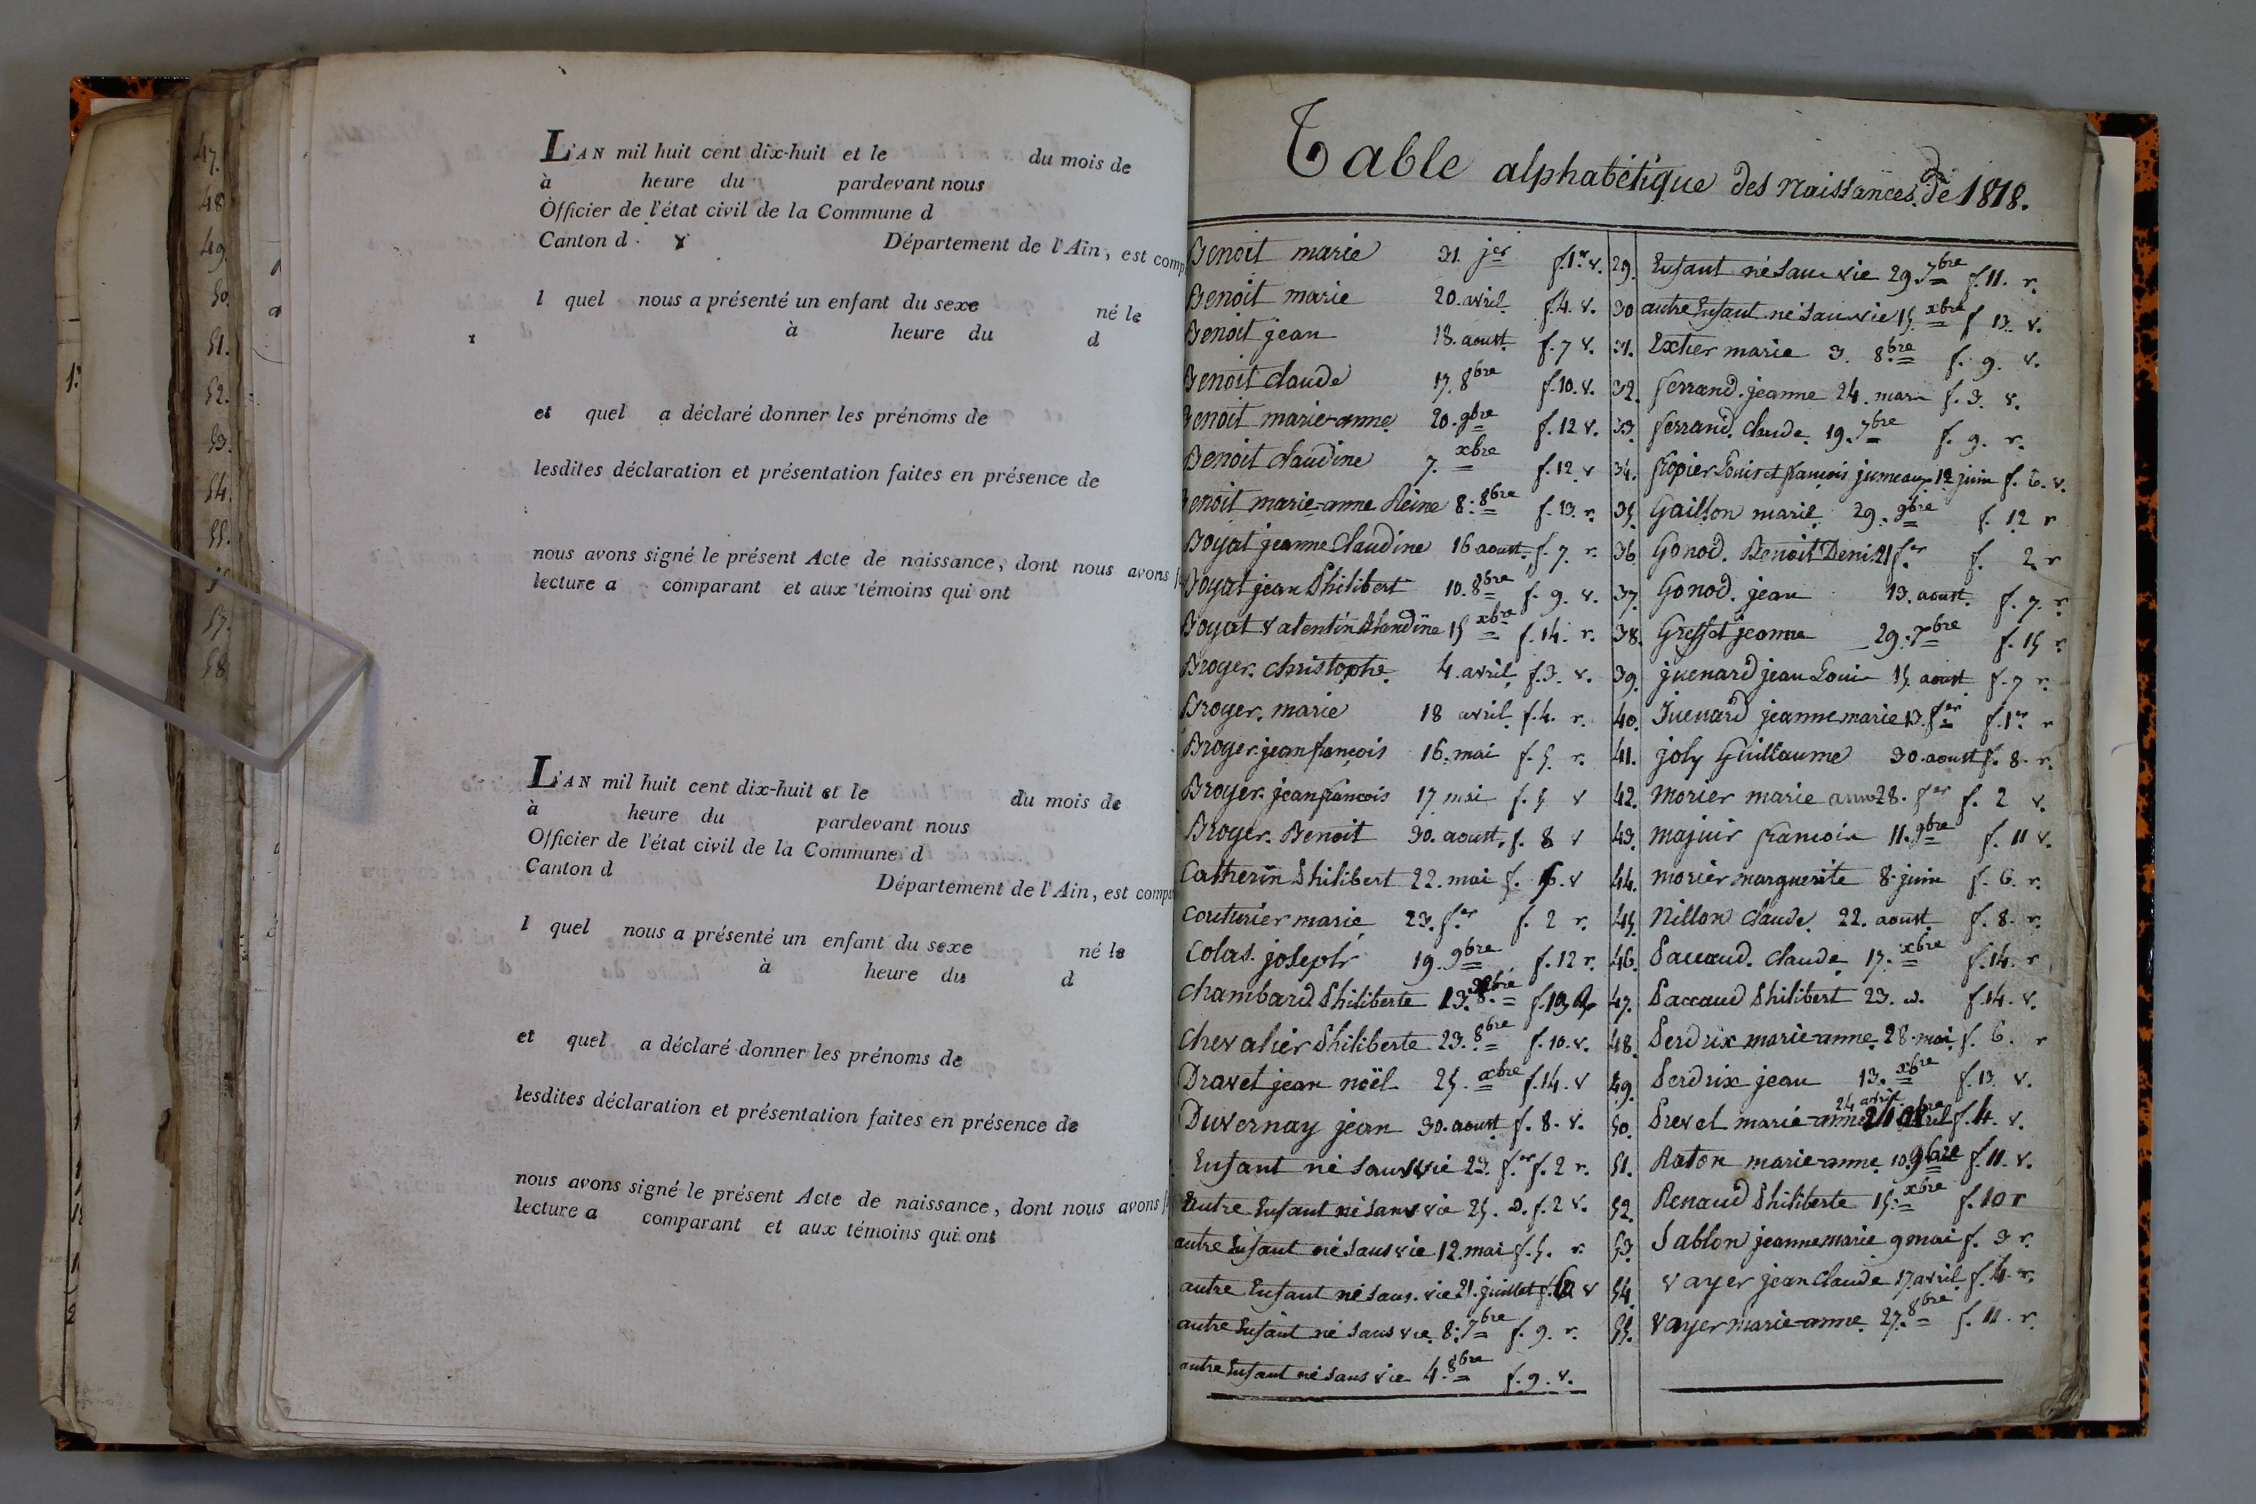 47.
48
49
50.
51.
52.
53.
54.
55.
57.
58
L'AN mil huit cent dix-huit et le du mois de
à heure du pardevant nous
Officier de l'état civil de la Commune d
Canton d Département de l'Ain, est comp
l quel nous a présenté un enfant du sexe né le
à heure du d
et quel a déclaré donner les prénoms de
lesdites déclaration et présentation faites en présence de
nous avons signé le présent Acte de naissance, dont nous avons
lecture a comparant et aux témoins qui ont
L'AN mil huit cent dix-huit et le du mois de
à heure du pardevant nous
Officier de l'état civil de la Commune d
Canton d Département de l'Ain, est comp
l quel nous a présenté un enfant du sexe né le
à heure du d
et quel a déclaré donner les prénoms de
lesdites déclaration et présentation faites en présence de
nous avons signé le présent Acte de naissance, dont nous avons
lecture a comparant et aux témoins qui ont
Table alphabétique des naissances de 1818.
Benoit marie 31. jer f.1er v.
Benoit marie 20. avril f.4. v.
Benoit jean 18. aoust f.7 v.
Benoit claude 17. 8bre f.10. v.
Benoit marie-anne 20. 9bre f.12 v.
Benoit claudine 7. xbre f.12 v
Benoit marie-anne Reine 8. 8bre f.13. r.
Boyat jeanne claudine 16 aoust f.7. r.
Boyat jean Philibert 10. 8bre f.9. v.
Boyat valentin 15 xbre f.14. r.
Broyer. christophe. 4. avril f.3. v.
Broyer. marie 18 avril f.4. r.
Broyer. jean françois 16. mai f.5. r.
Broyer. jean francois 17 mai f.5 v
Broyer. Benoit 30. aoust. f. 8 v
Catherin Philibert 22. mai f. 6. v
Couturier marie 23. fer f. 2 r.
Colas. joseph 19. 9bre f.12 r.
Chambard Philiberte f.13
Chevalier Philiberte 23. 8bre f.10. v.
Dravet jean noël 25. xbre f.14. v
Duvernay jean 30. aoust f. 8. v.
Enfant né sans vie 23. fer f. 2 r.
autre Enfant né sans vie 25. d. f.2 v.
autre Enfant né sans vie 12. mai f.5. r.
autre Enfant né sans vie 21. juillet v
autre Enfant né sans vie 8. 7bre f.9. r.
autre Enfant né sans vie 4. 8bre f.9. v.
29. Enfant né sans vie 29. 7bre f.11. r.
30 autre Enfant né sans vie 15. xbre f 13. v.
31. Extier marie 3. 8bre f. 9. v.
32. ferrand. jeanne 24. mars f. 3. v.
33. ferrand. claude. 19. 7bre f. 9. r.
34. Louis et françois jumeaux 12 juin f. 6. v.
35. Gaillon marie 29. 9bre f. 12 r
36. Gonod. Benoit Denis 21 fer f. 2 r
37. Gonod. jean 13. aoust. f. 7. r.
38. Greffet jeanne 29. xbre f. 15 r
39. juenard jean Louis 15. aoust f. 7 r.
40. Juenard jeanne marie 13. fer f.1er r
41. joly Guillaume 30. aoust f. 8. r.
42. morier marie anne 28. fer f. 2 v.
43. majuir francois 11. 9bre f. 11 v.
44. morier marguerite 8. juin f. 6. r.
45. Nillon claude. 22. aoust f. 8. r.
46. Paccaud. claude 17. xbre f.14. r
47. Paccaud Philibert 23. d. f.14. v.
48. Perdrix marie-anne. 28. mai f. 6. r
49. Perdrix jean 13. xbre f.13 v.
50. Prevel marie-anne 24 avril f.4. v.
51. Raton marie-anne. 10. 9bre f.11. v.
52. Renaud Philiberte 15. xbre f.10 r
53. Sablon jeanne marie 9 mai f. 3 r.
54. vayer jean claude 17. avril f.4. r.
55. vayer marie-anne. 27. 8bre f.11. r.